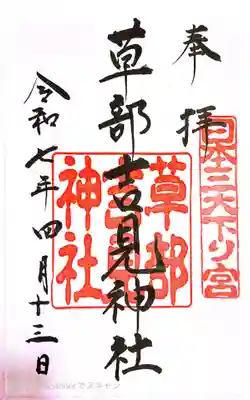 奉拝
日本三大下り宮
草部吉見神社
草部
吉見
神社
令和七年四月十三日
でスキャン